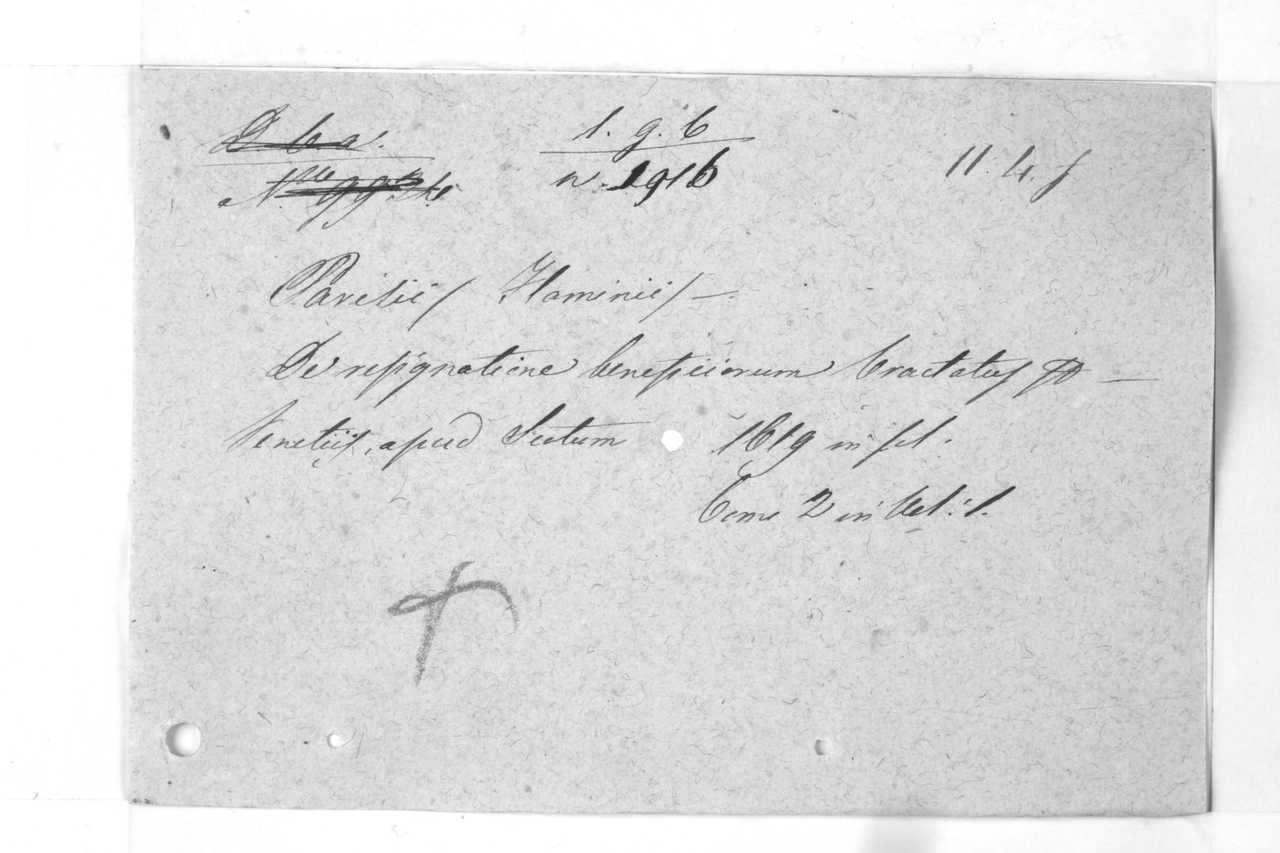 D. b. a.
1. g. 6
n. 1916
11. 4. f
Parisii Flaminii —
De resignatione beneficiorum tractatus —
Venetiis, apud Scotum 1619 in fol.
Tomi 2 in Vol. 1.